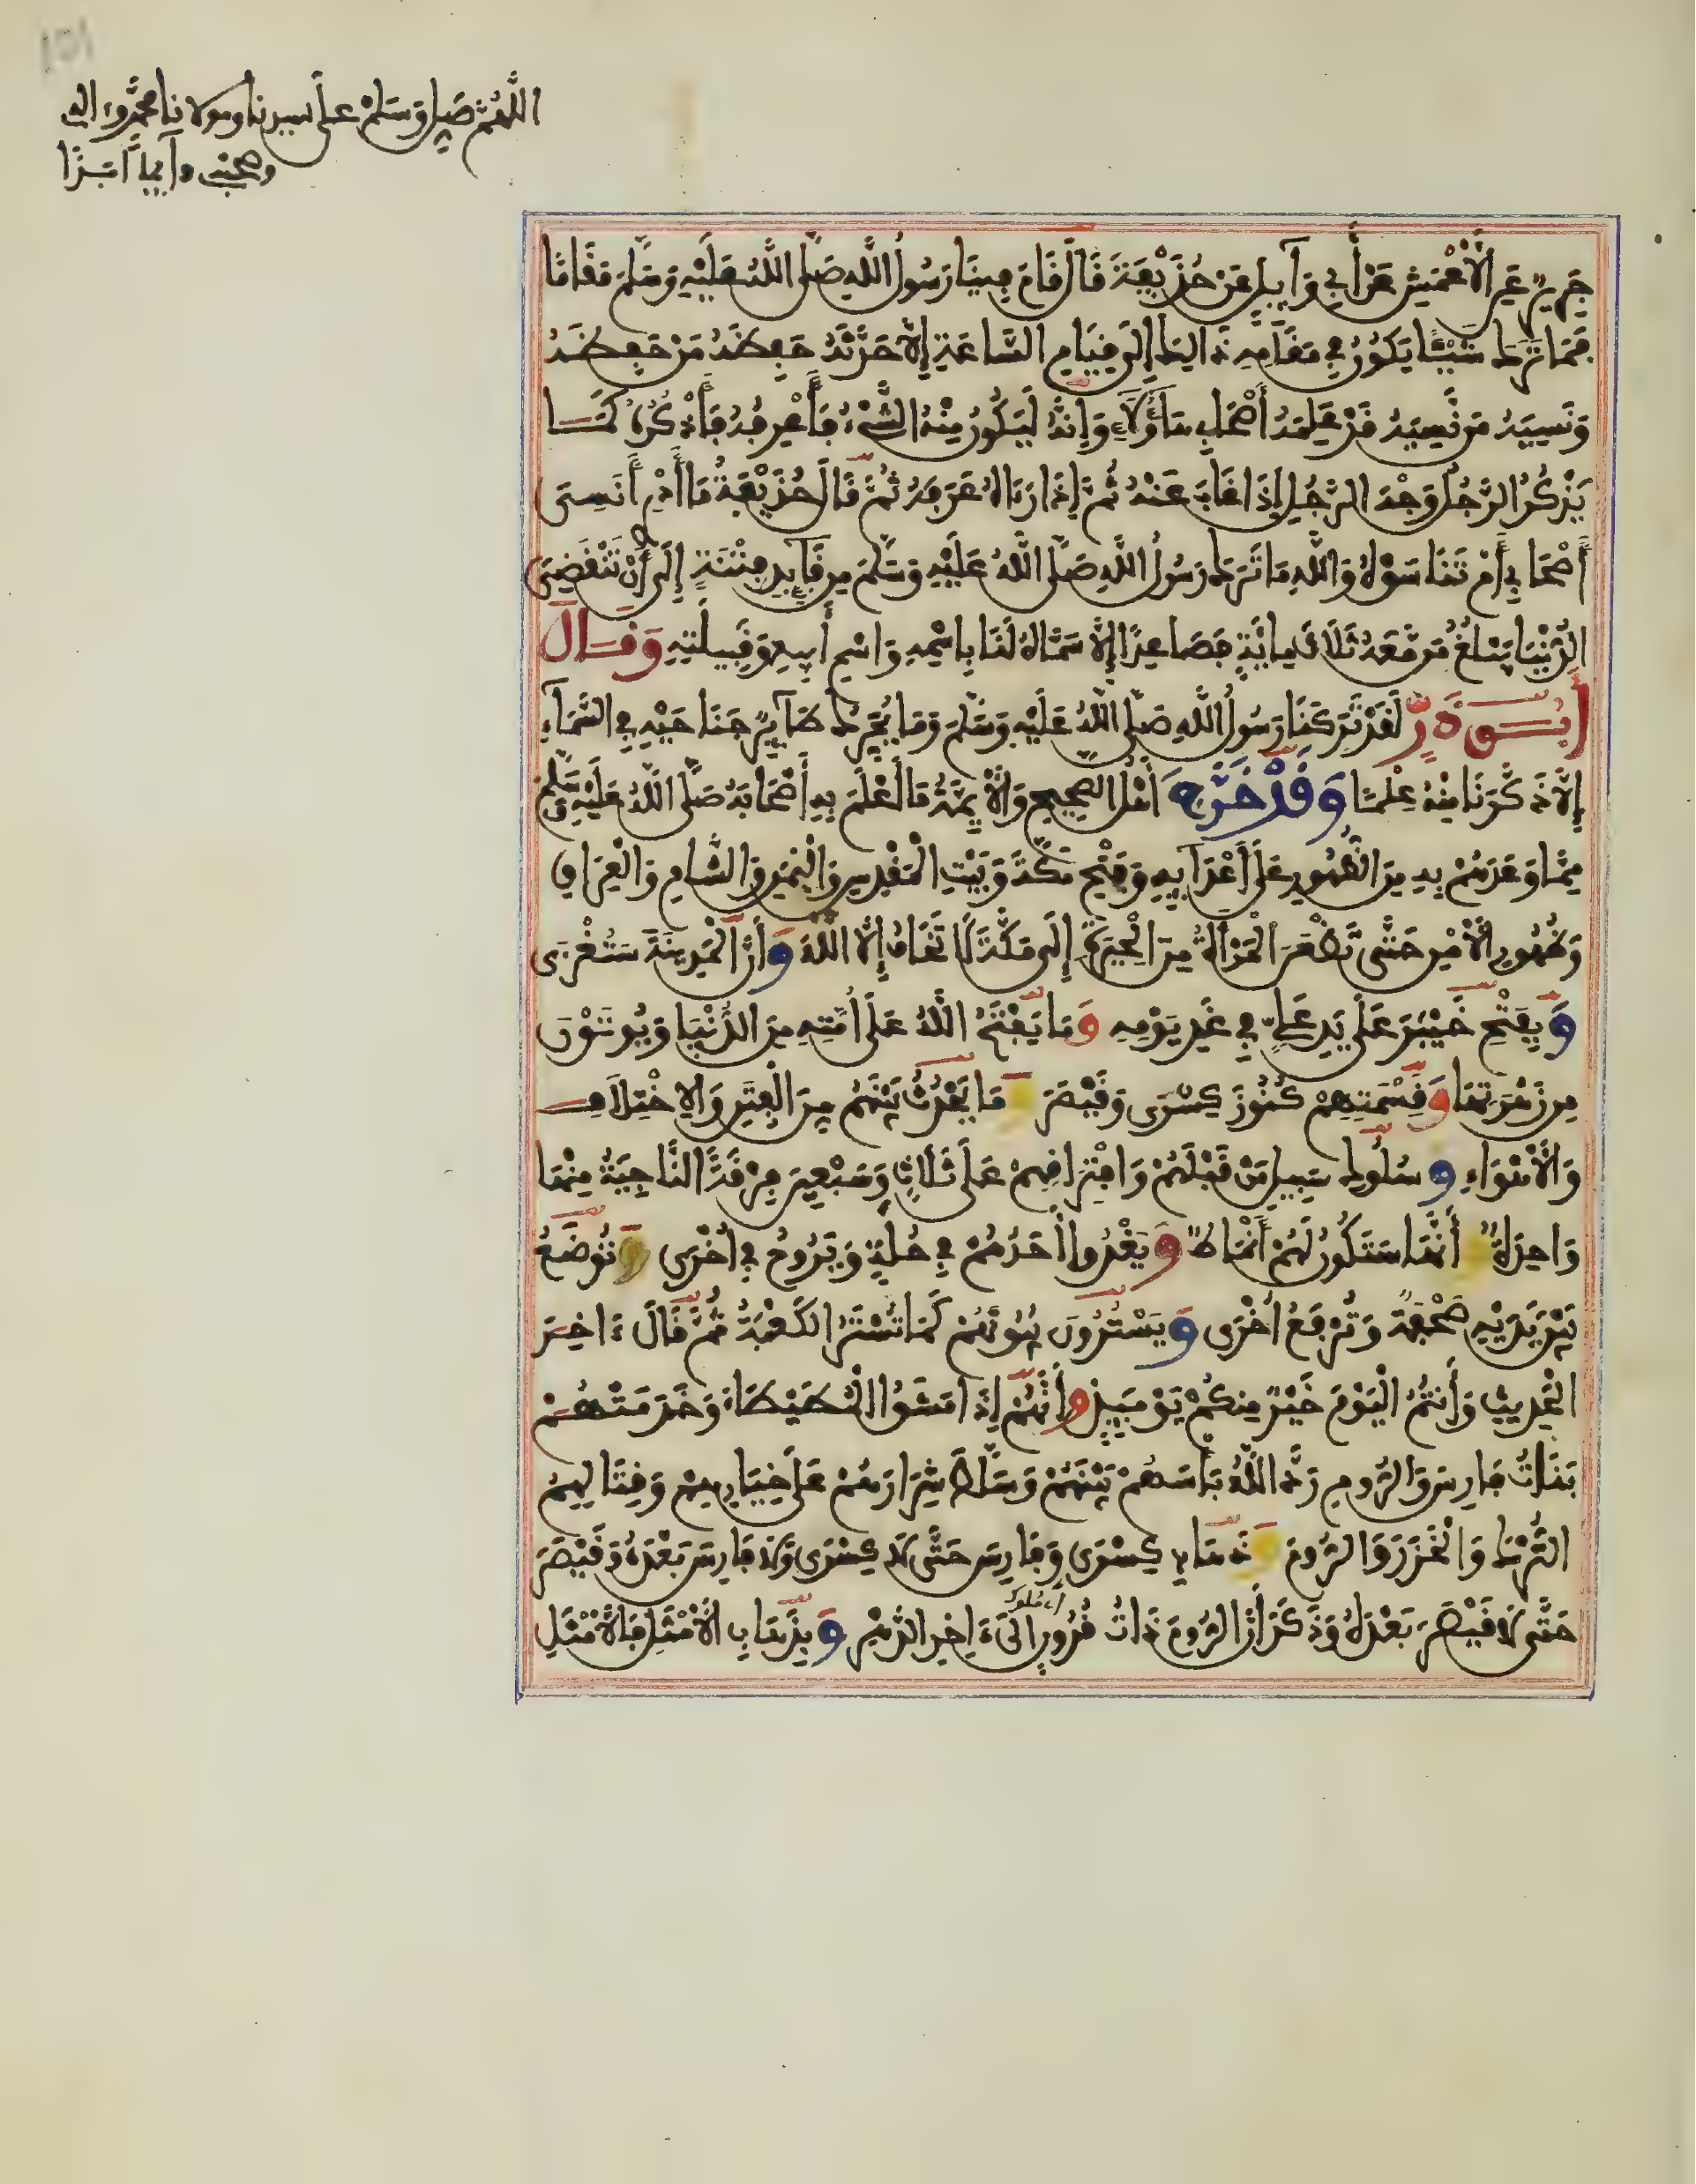 اللَّهُمَّ صَلِّ وَسَلِّمْ عَلَى سيدنا ومولانا محمَّد وءاله
وصحبه دآيماً أبَدًا
جَرِيرٌ عَنِ الْأَعْمَشِ عَنْ أَبِي وَآيِلٍ عَنْ حُذَيْفَةَ قَالَ قَامَ فِينَا رَسُولُ اللَّهِ صَلَّى اللَّهُ عَلَيْهِ وَسَلَّمَ مَقَامًا
فَمَا تَرَكَ شَيْئًا يَكُونُ فِي مَقَامِهِ ذَالِكَ إِلَى قِيَامِ السَّاعَةِ إِلَّا حَدَّثَهُ حَفِظَهُ مَنْ حَفِظَهُ
وَنَسِيَهُ مَن نَّسِيَهُ قَدْ عَلِمَهُ أَصْحَابِي هَاؤُلَاءِ وَإِنَّهُ لَيَكُونُ مِنْهُ الشَّيْءُ فَأَعْرِفُهُ فَأَذْكُرُهُ كَمَا
يَذْكُرُ الرَّجُلُ وَجْهَ الرَّجُلِ إِذَا غَابَ عَنْهُ ثُمَّ إِذَا رَءَاهُ عَرَفَهُ ثُمَّ قَالَ حُذَيْفَةُ مَا أَدْرِي أَنَسِيَ
أَصْحَابِي أَمْ تَنَاسَوْهُ وَاللَّهِ مَا تَرَكَ رَسُولُ اللَّهِ صَلَّى اللَّهُ عَلَيْهِ وَسَلَّمَ مِن قَآيِدِ فِتْنَةٍ إِلَى أَنْ تَنْقَضِيَ
الدُّنْيَا يَبْلُغُ مَن مَّعَهُ ثَلَاثَ مِايَةٍ فَصَاعِدًا إِلَّا سَمَّاهُ لَنَا بِاسْمِهِ وَاسْمِ أَبِيهِ وَقَبِيلَتِهِ وَقَالَ
أَبُو ذَرٍّ لَقَدْ تَرَكَنَا رَسُولُ اللَّهِ صَلَّى اللَّهُ عَلَيْهِ وَسَلَّمَ وَمَا يُحَرِّكُ طَآيِرٌ جَنَاحَيْهِ فِي السَّمَآءِ
إِلَّا ذَكَّرَنَا مِنْهُ عِلْمًا وَقَدْ خَرَّجَ أَهْلُ الصَّحِيحِ وَالْأَيِمَّةُ مَا أَعْلَمَ بِهِ أَصْحَابَهُ صَلَّى اللَّهُ عَلَيْهِ وَسَلَّمَ
مِمَّا وَعَدَهُمْ بِهِ مِنَ الظُّهُورِ عَلَى أَعْدَآيِهِ وَفَتْحِ مَكَّةَ وَبَيْتِ الْمَقْدِسِ وَالْيَمَنِ وَالشَّامِ وَالْعِرَاقِ
وَظُهُورِ الْأَمْنِ حَتَّى تَظْعَنَ الْمَرْأَةُ مِنَ الْحِيرَةِ إِلَى مَكَّةَ لَا تَخَافُ إِلَّا اللَّهَ وَأَنَّ الْمَدِينَةَ سَتُغْزَى
وَيَفْتَحُ خَيْبَرَ عَلَى يَدِ عَلِيٍّ فِي غَدِ يَوْمِهِ وَمَا يَفْتَحُ اللَّهُ عَلَى أُمَّتِهِ مِنَ الدُّنْيَا وَيُوتَوْنَ
مِن زَهْرَتِهَا وَقِسْمَتِهِمْ كُنُوزَ كِسْرَى وَقَيْصَرَ وَمَا يَحْدُثُ بَيْنَهُمْ مِنَ الْفِتَنِ وَالِاخْتِلَافِ
وَالْأَهْوَاءِ وَسُلُوكِ سَبِيلِ مَنْ قَبْلَهُمْ وَافْتِرَاقِهِمْ عَلَى ثَلَاثٍ وَسَبْعِينَ فِرْقَةً النَّاجِيَةُ مِنْهَا
وَاحِدَةٌ وَأَنَّهَا سَتَكُونُ لَهُمْ أَنْمَاطٌ وَيَغْدُوا أَحَدُهُمْ فِي حُلَّةٍ وَيَرُوحُ فِي أُخْرَى وَتُوضَعُ
بَيْنَ يَدَيْهِ صَحْفَةٌ وَتُرْفَعُ أُخْرَى وَيَسْتُرُونَ بُيُوتَهُمْ كَمَا تُسْتَرُ الْكَعْبَةُ ثُمَّ قَالَ ءَاخِرَ
الْحَدِيثِ وَأَنتُمُ الْيَوْمَ خَيْرٌ مِنكُمْ يَوْمَيِذٍ وَأَنَّهُمْ إِذَا مَشَوُا الْمُطَيْطَاءَ وَخَدَمَتْهُمْ
بَنَاتُ فَارِسَ وَالرُّومِ رَدَّ اللَّهُ بَأْسَهُمْ بَيْنَهُمْ وَسَلَّطَ شِرَارَهُمْ عَلَى خِيَارِهِمْ وَقِتَالِهِمُ
التُّرْكَ وَالْخَزَرَ وَالرُّومَ وَذَهَابِ كِسْرَى وَفَارِسَ حَتَّى لَا كِسْرَى وَلَا فَارِسَ بَعْدَهُ وَقَيْصَرَ
حَتَّى لَا قَيْصَرَ بَعْدَهُ وَذَكَرَ أَنَّ الرُّومَ ذَاتُ قُرُونٍ إِلَى ءَاخِرِ الدَّهْرِ وَبِذَهَابِ الْأَمْثَلِ فَالْأَمْثَلِ
أي ملوك